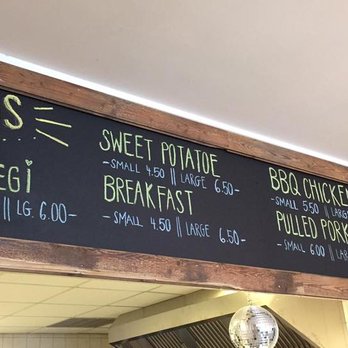 S
EGI
|| LG. 6.00-
SWEET POTATOE
- SMALL 4.50 || LARGE 6.50-
BREAKFAST
- SMALL 4.50 || LARGE 6.50-
BBQ CHICKEN
SMALL 5.50 || LARGE
PULLED PORK
SMALL 6.00 ||